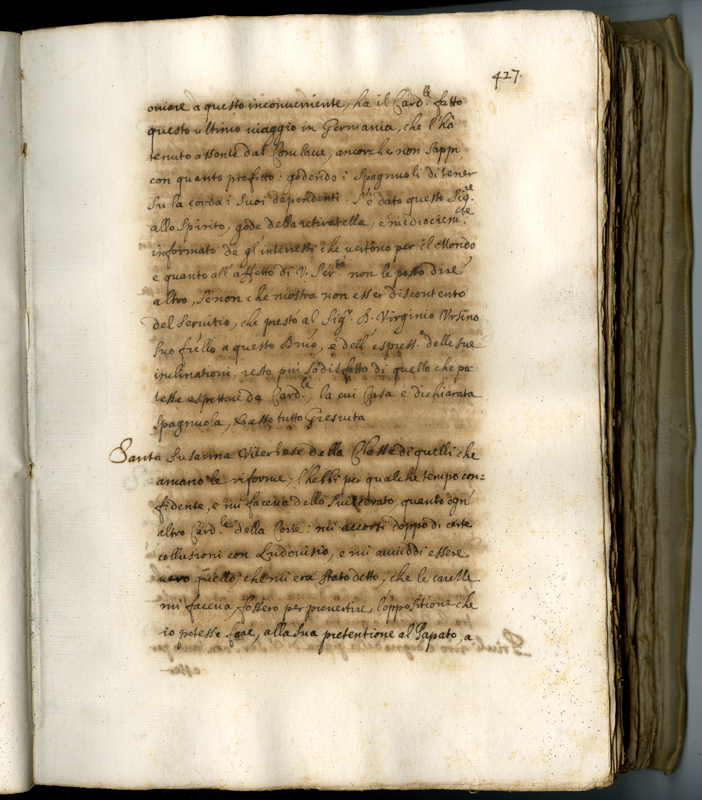 427.
oviare a questo inconveniente, ha il Card.le fatto
questo ultimo viaggio in Germania, che l'hà
tenuto assente dal Conclave, ancorche non sappi,
con quanto profitto: godendo i Spagnuoli di tener
su la corda i suoi dependenti. N'è dato questo Sig.re
allo Spirito, gode della retiratella, e mediocrem.te
informato de gl'interessi che vertono per il Mondo
e quanto all'affetto di V. Ser.tà non le posso dire
altro, senon che mostra non esser discontento
del Servitio, che prestò al Sig.r D. Virginio Ursino
suo frello a questo Dnio, e dell'espress.e delle sue
inclinationi, resto più sodisfatto di quello che po-
tesse aspettare da Card.le, la cui Casa è dichiarata
Spagnuola, et esso tutto Gresuita
Santa Susanna Viterbese della Classe di quelli che
amano le riforme; l'hebbi per qualche tempo con=
fidente, e mi faceva dello sviscerato, quanto ogn'
altro Card.le della Corte: mi accorsi doppo di certe
collusioni con Ludovisio, e mi avviddi essere
vero quello, che mi era stato detto, che le carezze
mi faceva, fossero per prevertire l'oppositione che
io potesse fare, alla sua pretentione al Papato, a